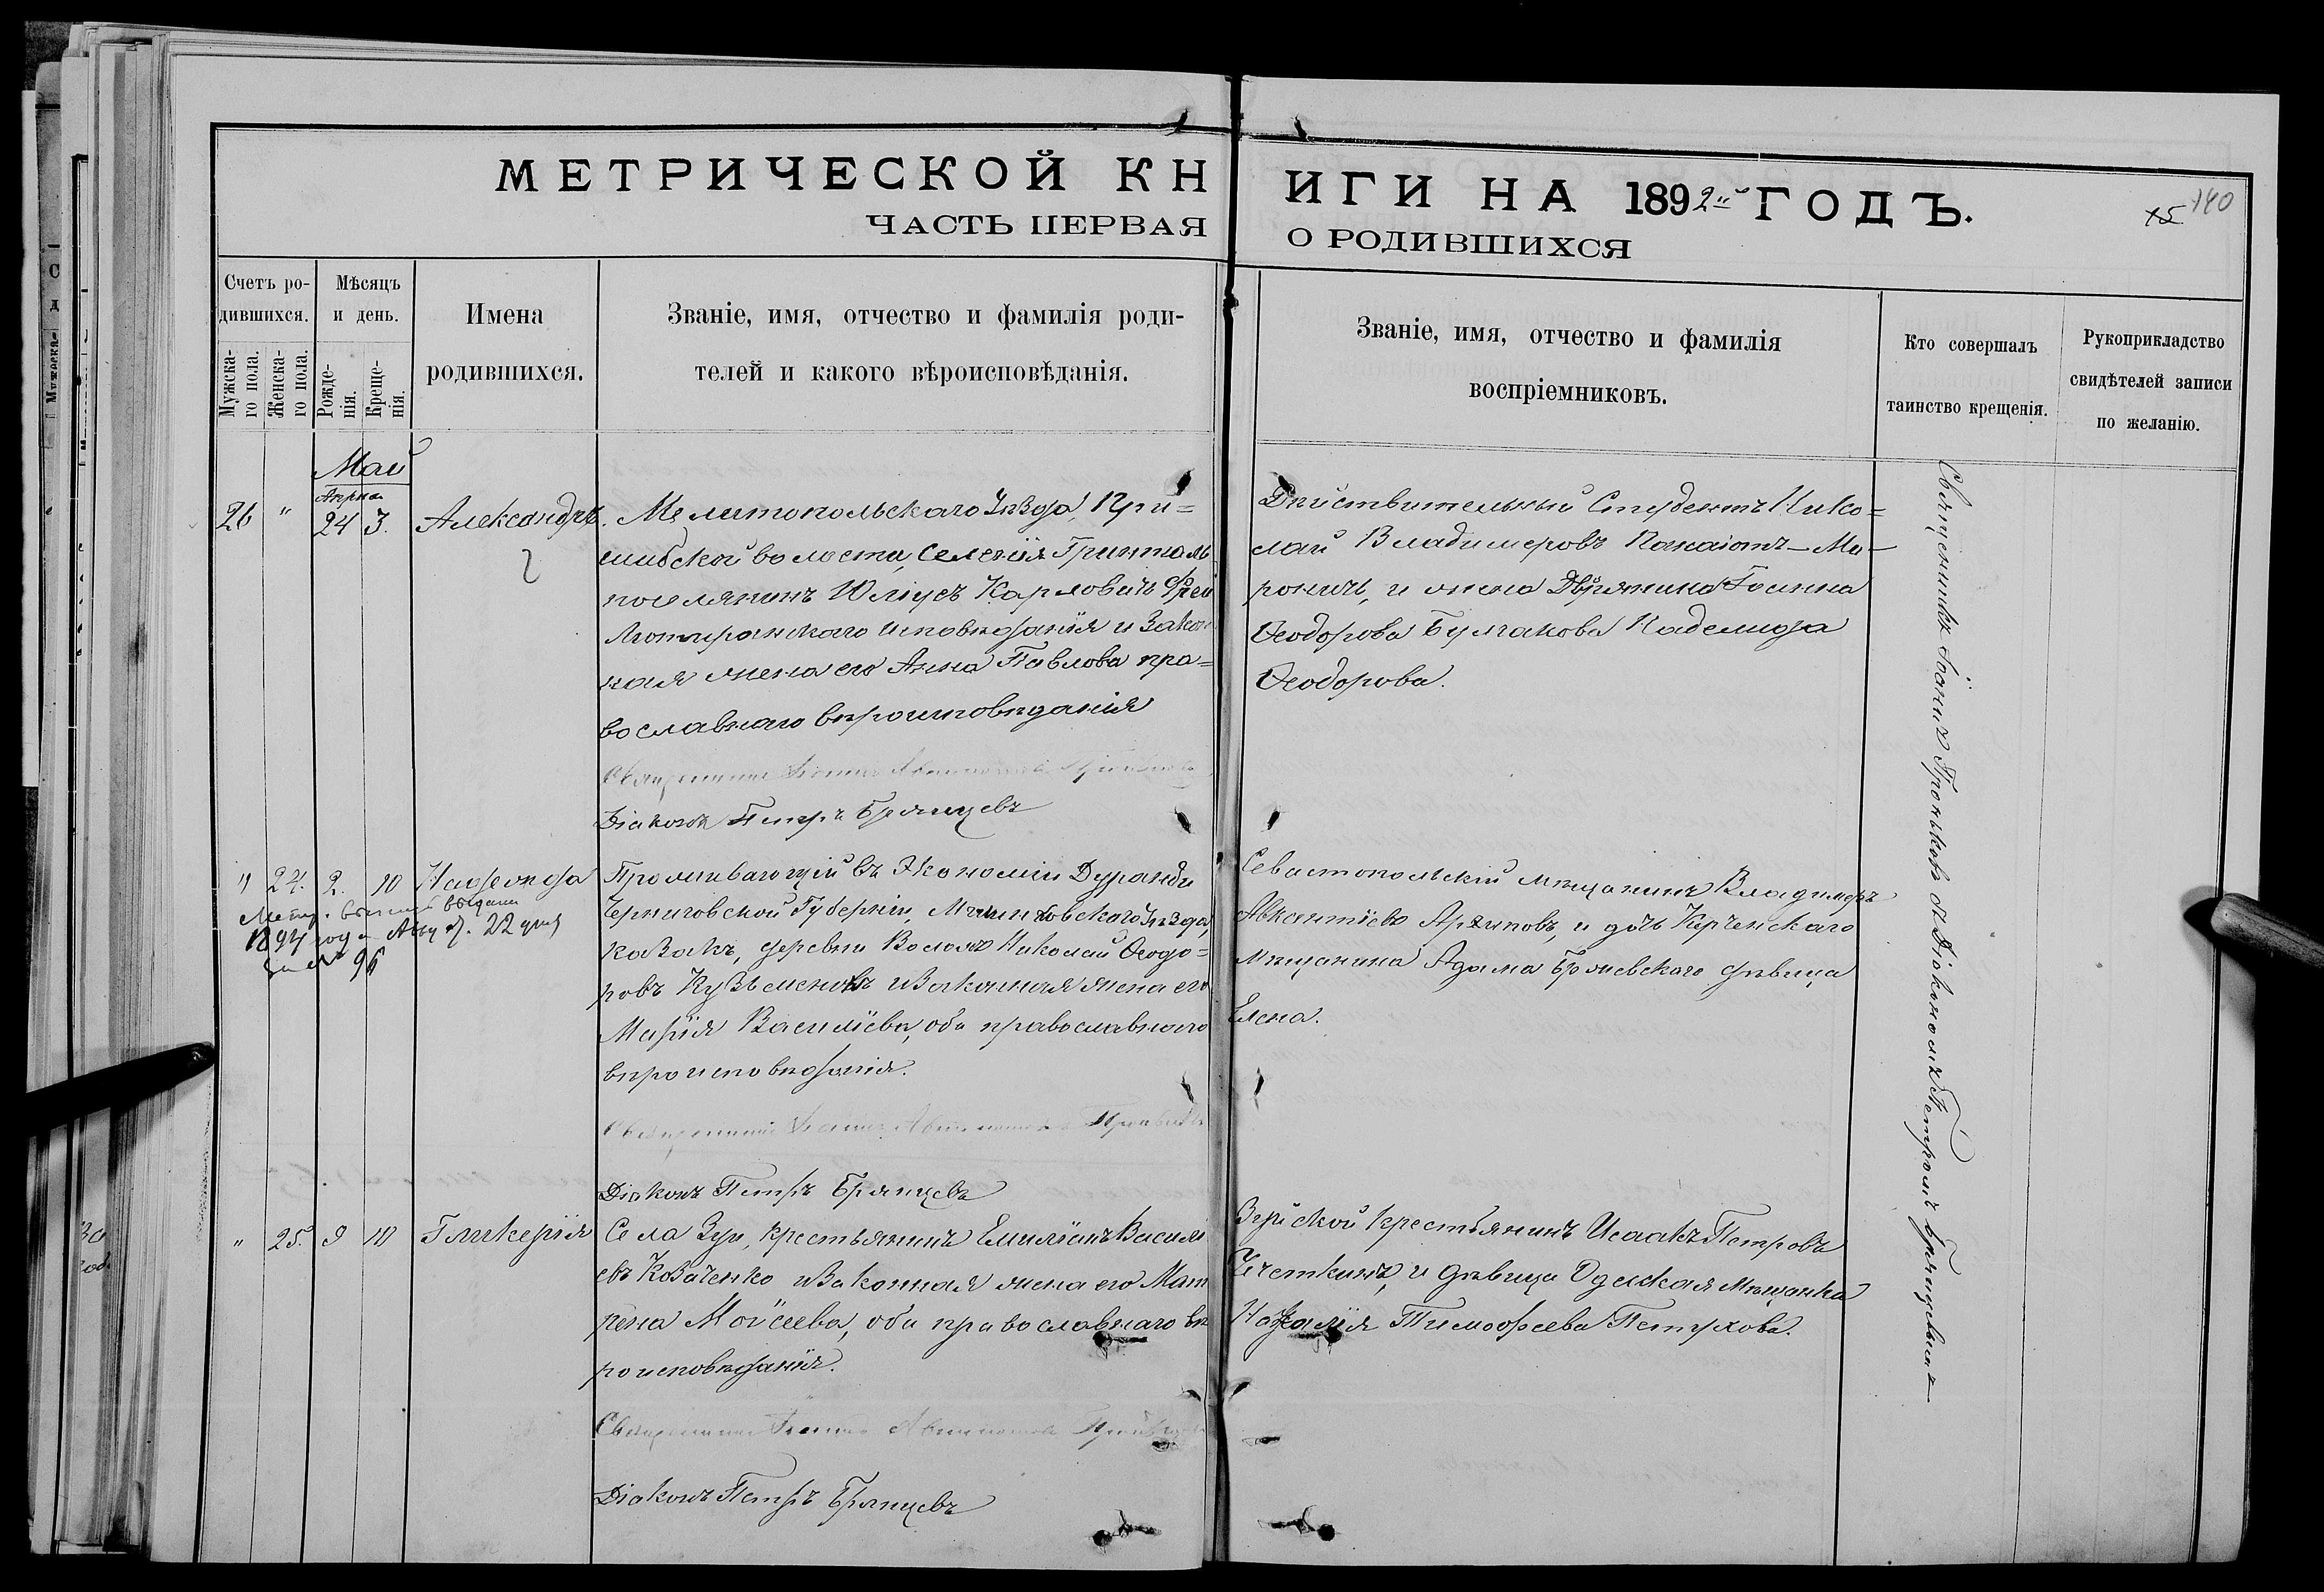 МЕТРИЧЕСКОЙ КНИГИ НА 1892й ГОДЪ.
15 140
ЧАСТЬ ПЕРВАЯ О РОДИВШИХСЯ
Счетъ ро-
дившихся.
Мужска-
го пола.
Женска-
го пола.
Мѣсяцъ
и день.
Рожде-
нія.
Креще-
нія.
Имена
родившихся.
Званіе, имя, отчество и фамилія роди-
телей и какого вѣроисповѣданія.
Званіе, имя, отчество и фамилія
воспріемниковъ.
Кто совершалъ
таинство крещенія.
Рукоприкладство
свидѣтелей записи
по желанію.
Май
Апрѣл
26 " 24 3. Александръ.
Мелитопольскаго Уѣзда, При=
шибской волости, Селенія Гринталь
поселянинъ Юліусъ Карловичъ Фрей
Лютеранскаго исповѣданія и закон
ная жена его Анна Павлова пра=
вославнаго вѣроисповѣданія
Священникъ Іоаннъ
Діаконъ Петръ Брянцевъ
Дѣйствительный Студентъ Нико=
лай Владимеровъ Панаіотъ-Ми-
роничъ, и жена Дворянина Іоанна
Ѳеодорова Булгакова
Ѳеодорова.
" 24. 2. 10
Проживающій въ Экономіи Дуранди
Черниговской Губерніи, Мглинсковскаго Уѣзда,
казакъ, деревни Николай Ѳеодо=
ровъ Кузьменовъ и законная жена его
Марія Василіева, оба православнаго
вѣроисповѣданія.
Метр. выпись выдана
1894 года Авг. 22 дня
96
Священникъ Іоаннъ
Діаконъ Петръ Брянцевъ
Севастопольскій мѣщанинъ Владимеръ
Авксентіевъ Архиповъ, и дочь Керченскаго
мѣщанина Адама Броневскаго дѣвица
Елена.
" 25. 9 10 Гликерія
Села Зуи, крестьянинъ Емиліанъ Васили
евъ Козаченко и законная жена его Мат
рена Моисеева, оба православнаго вѣ
роисповѣданія.
Священникъ Іоаннъ
Діаконъ Петръ Брянцевъ
Зуйской крестьянинъ Исаакъ Петровъ
Чечеткинъ, и дѣвица Одесская мѣщанка
Наталія Тимофеева Петухова.
Священникъ Іоаннъ съ Діакономъ Петромъ Брянцевымъ